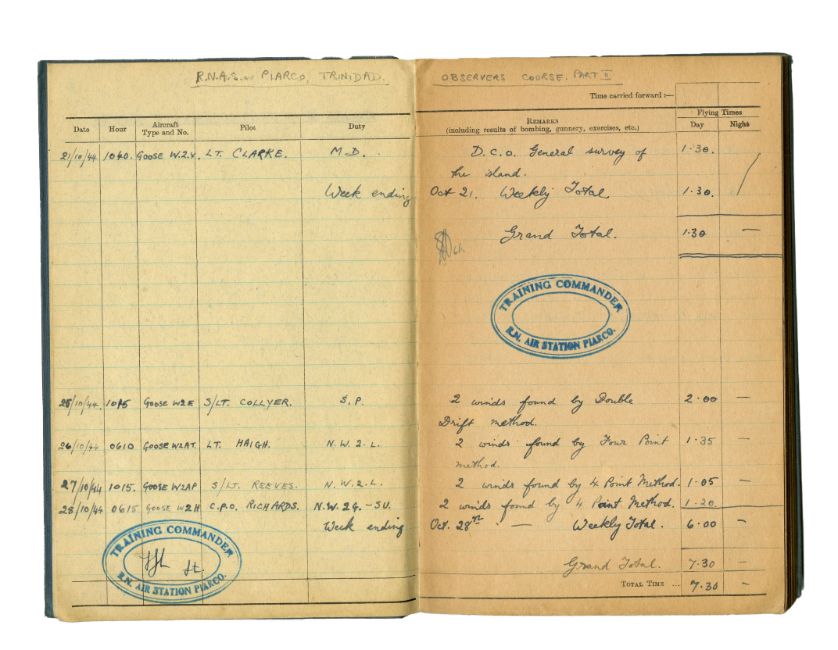 R.N.A.S. PIARCO, TRINIDAD.
OBSERVERS COURSE. PART II
Time carried forward :—
Date Hour Aircraft Type and No. Pilot Duty
REMARKS (including results of bombing, gunnery, exercises, etc.)
Flying Times
Day Night
21/10/44 1040. GOOSE W.2.V. LT. CLARKE. M.D. D.C.O. General survey of 1·30.
the island.
Week ending Oct 21. Weekly Total 1·30.
Grand Total. 1·30 —
TRAINING COMMANDER
R.N. AIR STATION PIARCO.
25/10/44. 1015 GOOSE W2E S/LT. COLLYER. S.P. 2 winds found by Double 2·00 —
Drift method.
26/10/44 0610 GOOSE W2AT. LT. HAIGH. N.W.2.L. 2 winds found by Four Point 1·35 —
method.
27/10/44 1015. GOOSE W2AP S/LT. REEVES. N.W.2.L. 2 winds found by 4 Point Method. 1·05 —
28/10/44 0615 GOOSE W2H C.P.O. RICHARDS. N.W.2G.-SU. 2 winds found by 4 Point Method. 1·20. —
Week ending Oct. 28th — Weekly Total. 6·00 —
TRAINING COMMANDER
R.N. AIR STATION PIARCO.
Grand Total. 7·30 —
TOTAL TIME ... 7·30 —